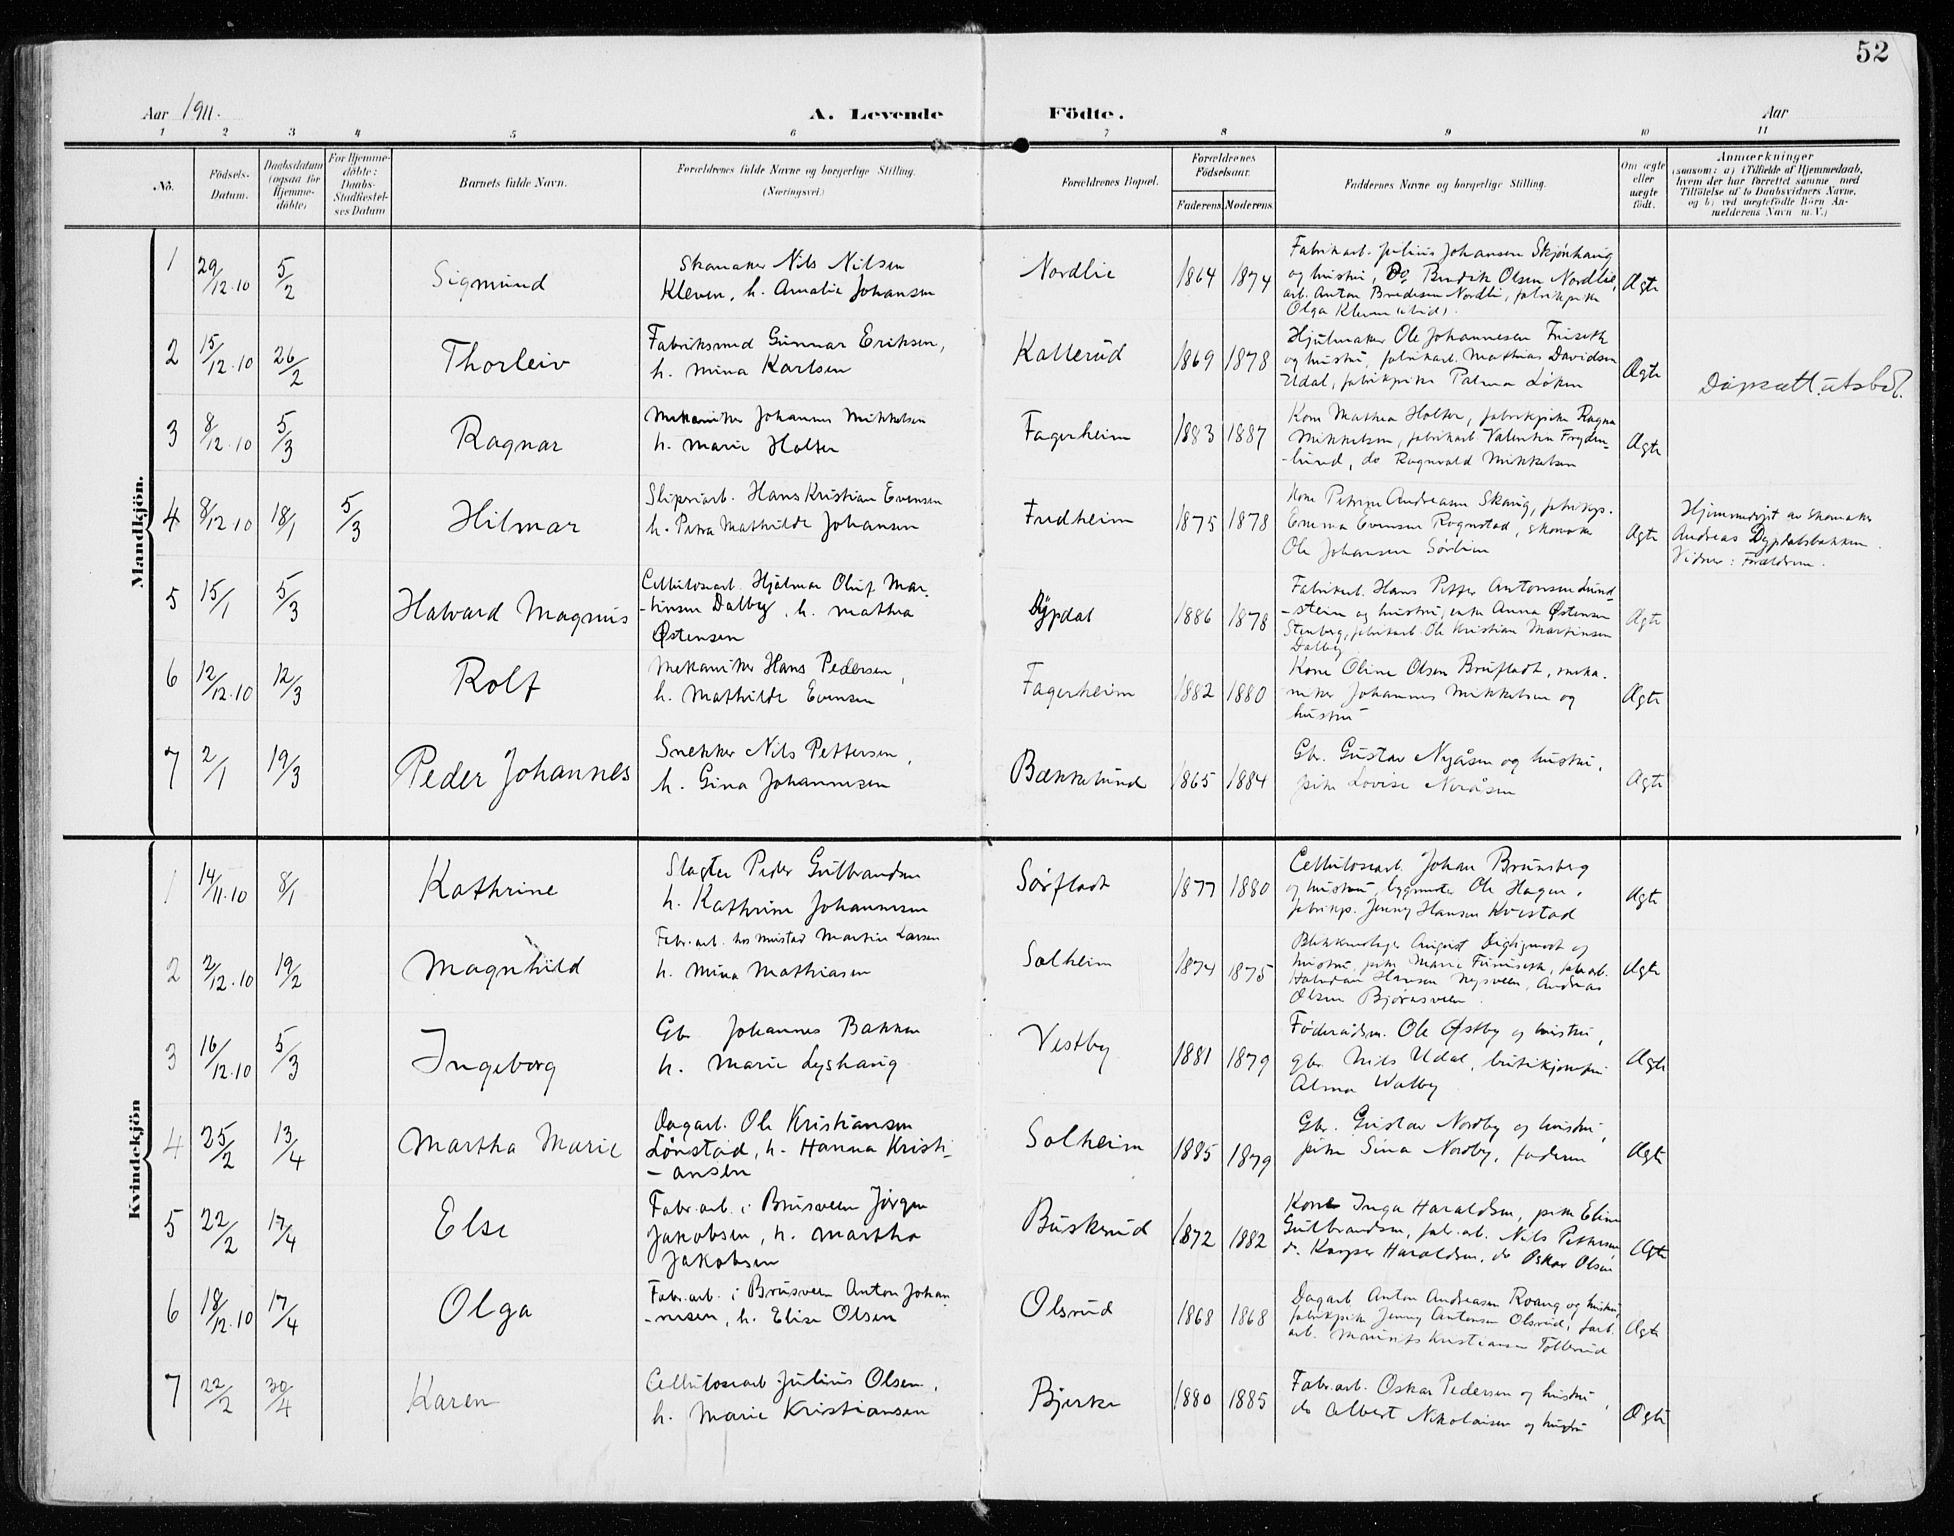 52
Aar 1911.
A. Levende
Födte.
Aar
1 2 3 4 5 6 7 8 9 10 11
No.
Födsels-Datum.
Daabsdatum (ogsaa for Hjemme-döbte)
For Hjemme-döbte: Daabs-Stadfæstel-ses Datum
Barnets fulde Navn.
Forældrenes fulde Navne og borgerlige Stilling.
(Næringsvei.)
Forældrenes Bopæl.
Forældrenes Födselsaar.
Faderens.
Moderens.
Faddernes Navne og borgerlige Stilling.
Om ægte eller uægte födt.
Anmærkninger
(saasom: a) i Tilfælde af Hjemmedaab,
hvem der har forrettet samme med
Tilföielse af to Daabsvidners Navne,
og b) ved uægtefödte Börn An-
melderens Navn m. V.)
Mandkjön.
1 29/12.10 5/2 Sigmund
Skomaker Nils Nilsen
Kleven, h. Amalie Johansen
Nordlie 1864 1874
Fabrikarb. Julius Johansen Skjønhaug
og hustru, Do Bredik Olsen Nordlie,
arb. Anton Bredesen Nordli, fabrikpike
Olga Kleven
Ægte
2 15/12.10 26/2 Thorleiv
Fabriksmed Gunnar Eriksen,
h. Mina Karlsen
Kallerud 1869 1878
Hjulmaker Ole Johannesen Furseth
og hustru, fabrikarb. Mathias Davidsen
Udal, fabrikpike Palma Løken
Ægte
Dåpsatt. utsted.
3 8/12.10 5/3 Ragnar
Mekaniker Johannes Mikkelsen
h. Marie Holter
Fagerheim 1883 1887
Kone Mathea Holter, fabrikpike Ragna
Mikkelsen, fabrikarb Valentin Fryden-
lund, do Ragnvald Mikkelsen
Ægte
4 8/12 10 18/1 5/3 Hilmar
Sliperiarb. Hans Kristian Evensen
h. Petra Mathilde Johansen
Fredheim 1875 1878
Kone Petrine Andreasen Skaug, fabrikp.
Emma Evensen Rognstad, skomaker
Ole Johansen Sørlien
Ægte
Hjemmedøpt av skomaker
Andreas Dypdalsbakken.
Vidner: Forældrene.
5 15/1 5/3 Halvard Magnus
Cellulosearb. Hjalmar Oluf Mar-
-tinsen Dalby, h. Mathea
Østensen
Dypdal 1886 1878
Fabrikarb. Hans Petter Antonsen Lund-
-stein og hustru, enke Anna Østensen
Stenberg, fabrikarb. Ole Kristian Martinsen
Dalby
Ægte
6 12/12.10 12/3 Rolf
Mekaniker Hans Pedersen,
h. Mathilde Evensen
Fagerheim 1882 1880
Kone Oline Olsen Brufladt, meka-
niker Johannes Mikkelsen og
hustru
Ægte
7 2/1 19/3 Peder Johannes
Snekker Nils Pettersen,
h. Gina Johannesen
Bækkelund 1865 1884
Gbr. Gustav Nyåsen og hustru,
pike Lovise Nyåsen
Ægte
Kvindekjön
1 14/11.10 8/1 Kathrine
Slagter Peder Gulbrandsen
h. Kathrine Johannesen
Sørfladt 1877 1880
Cellulosearb. Johan Brunsberg
og hustru, bygmester Ole Hagen,
fabrikp. Jenny Hansen Kvestad
Ægte
2 2/12.10 19/2 Magnhild
Fabr.arb. hos Mustad Martin Larsen
h. Mina Mathiasen
Solheim 1874 1875
August og
hustru, pike Marie Furuseth, fabr.arb.
Halvdan Hansen Nysveen, Andreas
Olsen Bjørnsveen.
Ægte
3 16/12.10 5/3 Ingeborg
Gbr Johannes Bakken
h. Marie Lyshaug
Vestby 1881 1879
Føderådsm. Ole Østby og hustru,
gbr. Nils Udal, butikjomfru
Alma Walby
Ægte
4 25/2 13/4 Martha Marie
Dagarb. Ole Kristiansen
Lønstad, h. Hanna Kristi-
-ansen
Solheim 1885 1879
Gbr. Gustav Nordby og hustru,
pike Sina Nordby, faderen
Ægte
5 22/2 17/4 Else
Fabr.arb. i Brusveen Jørgen
Jakobsen, h. Martha
Jakobsen
Buskerud 1872 1882
Kone Inga Haraldsen, pike Eline
Gulbrandsen, fab.arb. Nils Pettersen
do Kasper Haraldsen, do Oskar Olsen
Ægte
6 18/12.10 17/4 Olga
Fabr.arb. i Brusveen Anton Johan-
-nesen, h. Elise Olsen
Olsrud 1868 1868
Dagarb Anton Andreasen Roang og hustru,
fabrikpike Jenny Antonsen Olsrud, fabr.
arb. Mauritz Kristiansen Tollerud
Ægte
7 22/2 30/4 Karen
Cellulosearb Julius Olsen,
h. Marie Kristiansen
Bjerke 1880 1885
Fabr.arb. Oskar Pedersen og hustru,
do Albert Nikolaisen og hustru
Ægte